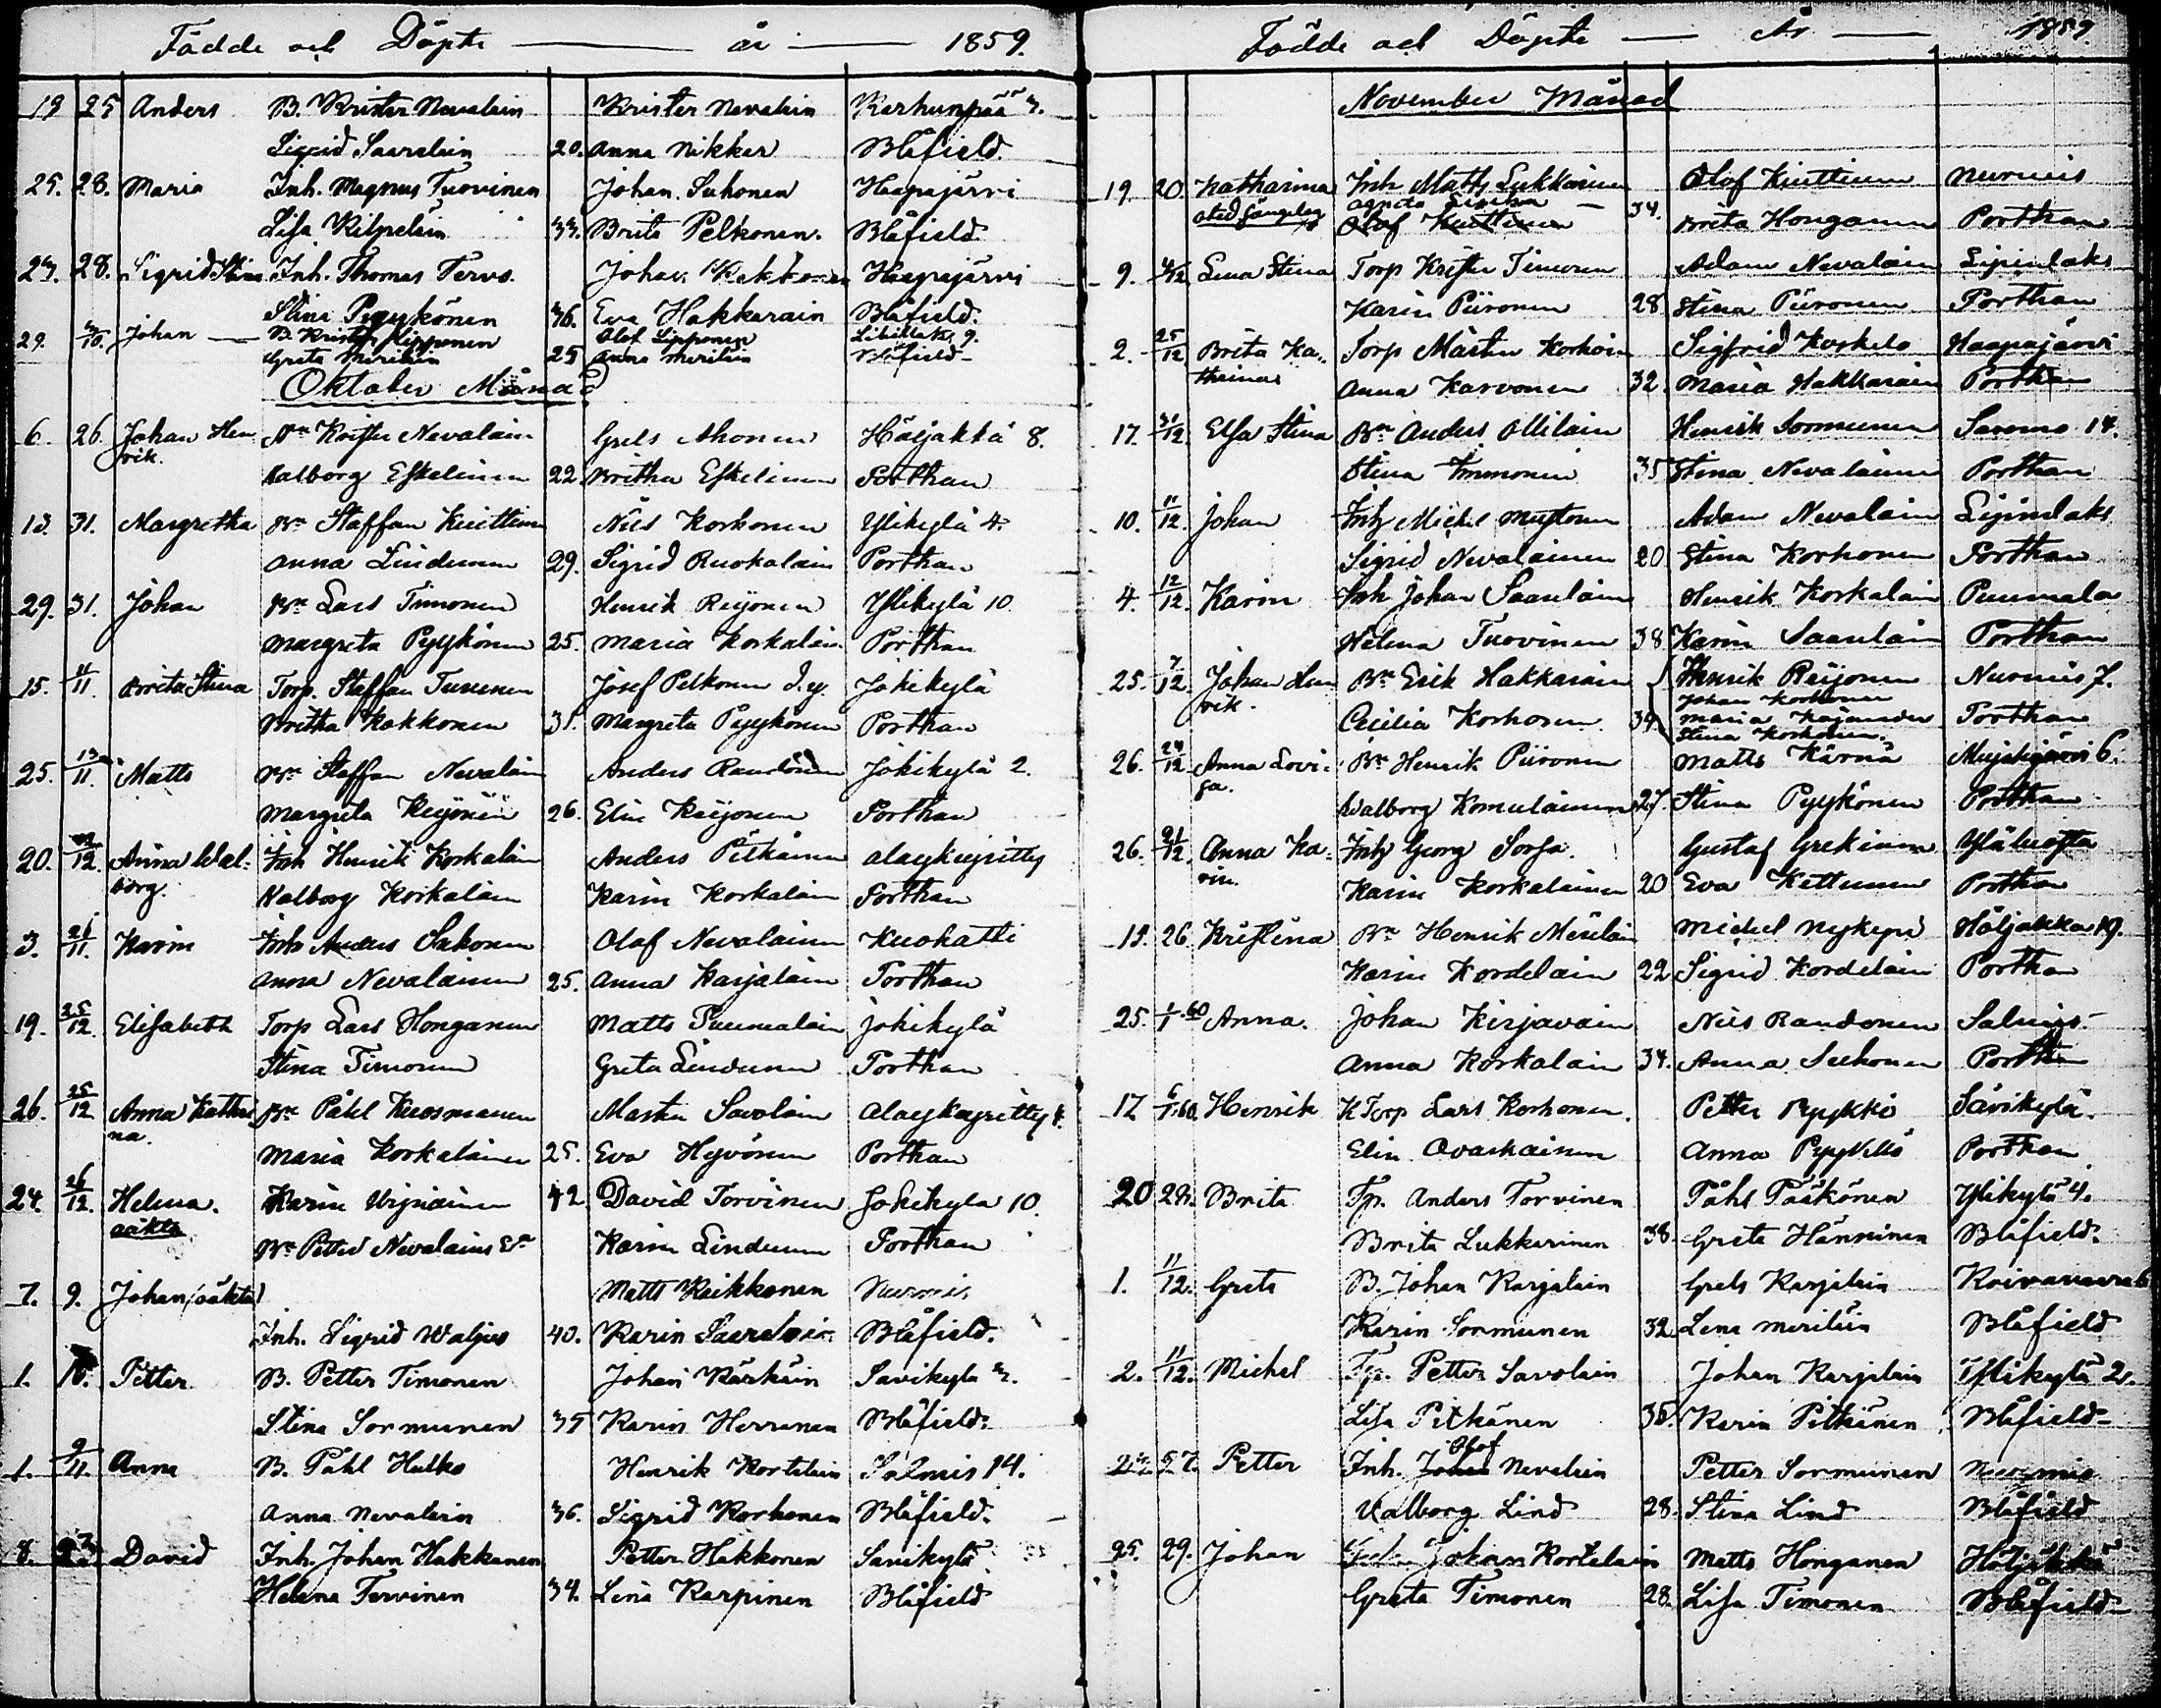 Födde och Döpte — år — 1859.
19 25 Anders B. Krister Nevalain Krister Nevalain Karhunpää 3.
Sigrid Saarelain 20. Anna Nikkar Blåfield.
25. 28. Maria Inh. Magnus Tuovinen Johan Suhonen Haapajärvi
Lisa Kilpelain 33. Brita Pelkonen. Blåfield
23. 28. Sigrid Stina Inh. Thomas Tervo. Johan Kekkonen Haapajärvi
Stina Pyykönen 36. Eva Hakkarain Blåfield.
29. 3/10. Johan — B. Krister Lipponen Olof Lipponen 9.
Greta Meriläin 25 Anna Meriläin Blåfield
Oktober Månad
6. 26. Johan Hen Bn Krister Nevalain Grels Ahonen Höljäkkä 8.
rik. Valborg Eskelinen 22 Britha Eskelinen Porthan
13. 31. Margretha Bn Staffan Kuittinen Nils Korhonen Ylikylä 4.
Anna Lindunen 29. Sigrid Ruokolain Porthan
29. 31. Johan Bn Lars Timonen Henrik Reijonen Ylikylä 10.
Margreta Pyykönen 25. Maria Korkalain Porthan
15. 11/11. Brita Stina Torp. Staffan Turunen Josef Pelkonen Jokikylä
Britha Kakkonen 31. Margreta Pyykönen Porthan
25. 13/11. Matts Bn Staffan Nevalain Anders Jokikylä 2.
Margreta Reijonen 26. Elin Reijonen Porthan
20. /12. Anna Wal- Inh Henrik Korkalain Anders Pitkänen
borg. Valborg Korkalain Karin Korkalain Porthan
3. 21/11. Karin Inh Anders Sakonen Olof Nevalainen Kuohatti
Anna Nevalainen 25. Anna Karjalain Porthan
19. 25/12. Elisabeth Torp Lars Honganen Matts Puumalain Jokikylä
Stina Timonen Greta Lindunen Porthan
26. 25/12. Anna Kathri Bn Påhl Kuosmanen Martin Savolain
na. Maria Korkalainen 25. Eva Hyvönen Porthan
24. 26/12. Helena. Karin 42 David Torvinen Jokikylä 10.
oäkta Bn Petter Nevalains Karin Lindunen Porthan
7. 9. Johan (oäkta) Matts Kaikkonen Nurmis
Inh. Sigrid Waljus 40. Karin Saarelain Blåfield.
1. 10. Petter B. Petter Timonen Johan Kärkäin Savikylä 3.
Stina Sormunen 35 Karin Herranen Blåfield.
1. 9/11. Anna B. Påhl Hulko Henrik Kortelain Salmis 14.
Anna Nevalain 36. Sigrid Korhonen Blåfield.
8. David Inh. Johan Hakkanen Petter Hakkonen Savikylä
Helena Tervinen 34. Lena Karpinen Blåfield
Födde och Döpte — År — 1859.
November Månad
19. 20. Katharina Inh Matts Lukkarinen Olof Kuittinen Nurmis
Olof Kuittinen 34. Brita Honganen Porthan
9. 4/12. Lena Stina Torp Krister Timonen Adam Nevalain Lipinlaks
Karin Piironen 28 Stina Piironen Porthan
2. 25/12 Brita Ka- Torp Mårten Korhoin Sigfrid Koskelo Haapajärvi
tharina Anna Karvonen 32. Maria Hakkarain Porthan
17. 31/12. Elsa Stina Bn Anders Ollilain Henrik Sormunen Saramo 14.
Stina Immonen 35 Stina Nevalainen Porthan
10. 11/12. Johan Inh Michel Mustonen Adam Nevalain Lipinlaks
Sigrid Nevalainen 20 Stina Korhonen Porthan
4. 12/12. Karin Inh Johan Saarelain Henrik Korkalain Puumala
Helena Tuovinen 38 Karin Saarelain Porthan
25. 7/12. Johan Hen Bn Erik Hakkarain Henrik Reijonen Nurmis 7.
rik. Johan Korhonen
Cecilia Korhonen 34. Maria Kajander Porthan
Stina Korhonen.
26. 24/12 Anna Lovi- Bn Henrik Piironen Matts Kärnä Mujejärvi 6.
sa. Walborg Komulainen 27. Stina Pyykönen Porthan
26. 21/12 Anna Ka- Inh Georg Sorsa. Gustaf Grekinen
rin. Karin Korkalainen 20 Eva Kettunen Porthan
19. 26. Kristina Bn Henrik Meriläin Michel Nykyri Höljäkkä 19.
Karin Kordelain 22 Sigrid Kordelain Porthan
25. 1/1 60 Anna. Johan Kirjavain Nils Raudonen Salmis.
Anna Korkalain 34. Anna Suhonen Porthan
17 6/1.60. Henrik K Torp Lars Korhonen. Petter Pyykkö Savikylä.
Elin Ovaskainen Anna Pyykkö Porthan.
20 28. Brita Tp. Anders Torvinen Påhl Pääkönen Ylikylä 4.
Brita Lukkarinen 38. Greta Hänninen Blåfield.
1. 11/12. Greta B. Johan Karjalain Grels Karjalain Koivuvaara 6
Karin Sormunen 32. Lena Meriläin Blåfield
2. 11/12. Michel Tp. Petter Savolain Johan Karjalain Ylikylä 2.
Lisa Pitkänen 36. Karin Pitkänen Blåfield
27. Petter Inh. Johan Olof Nevalain Petter Sormunen Nurmis
Valborg Lind 28. Stina Lind Blåfield
25. 29. Johan Johan Kortelain Matts Honganen Höljäkkä
Greta Timonen 28. Lisa Timonen Blåfield